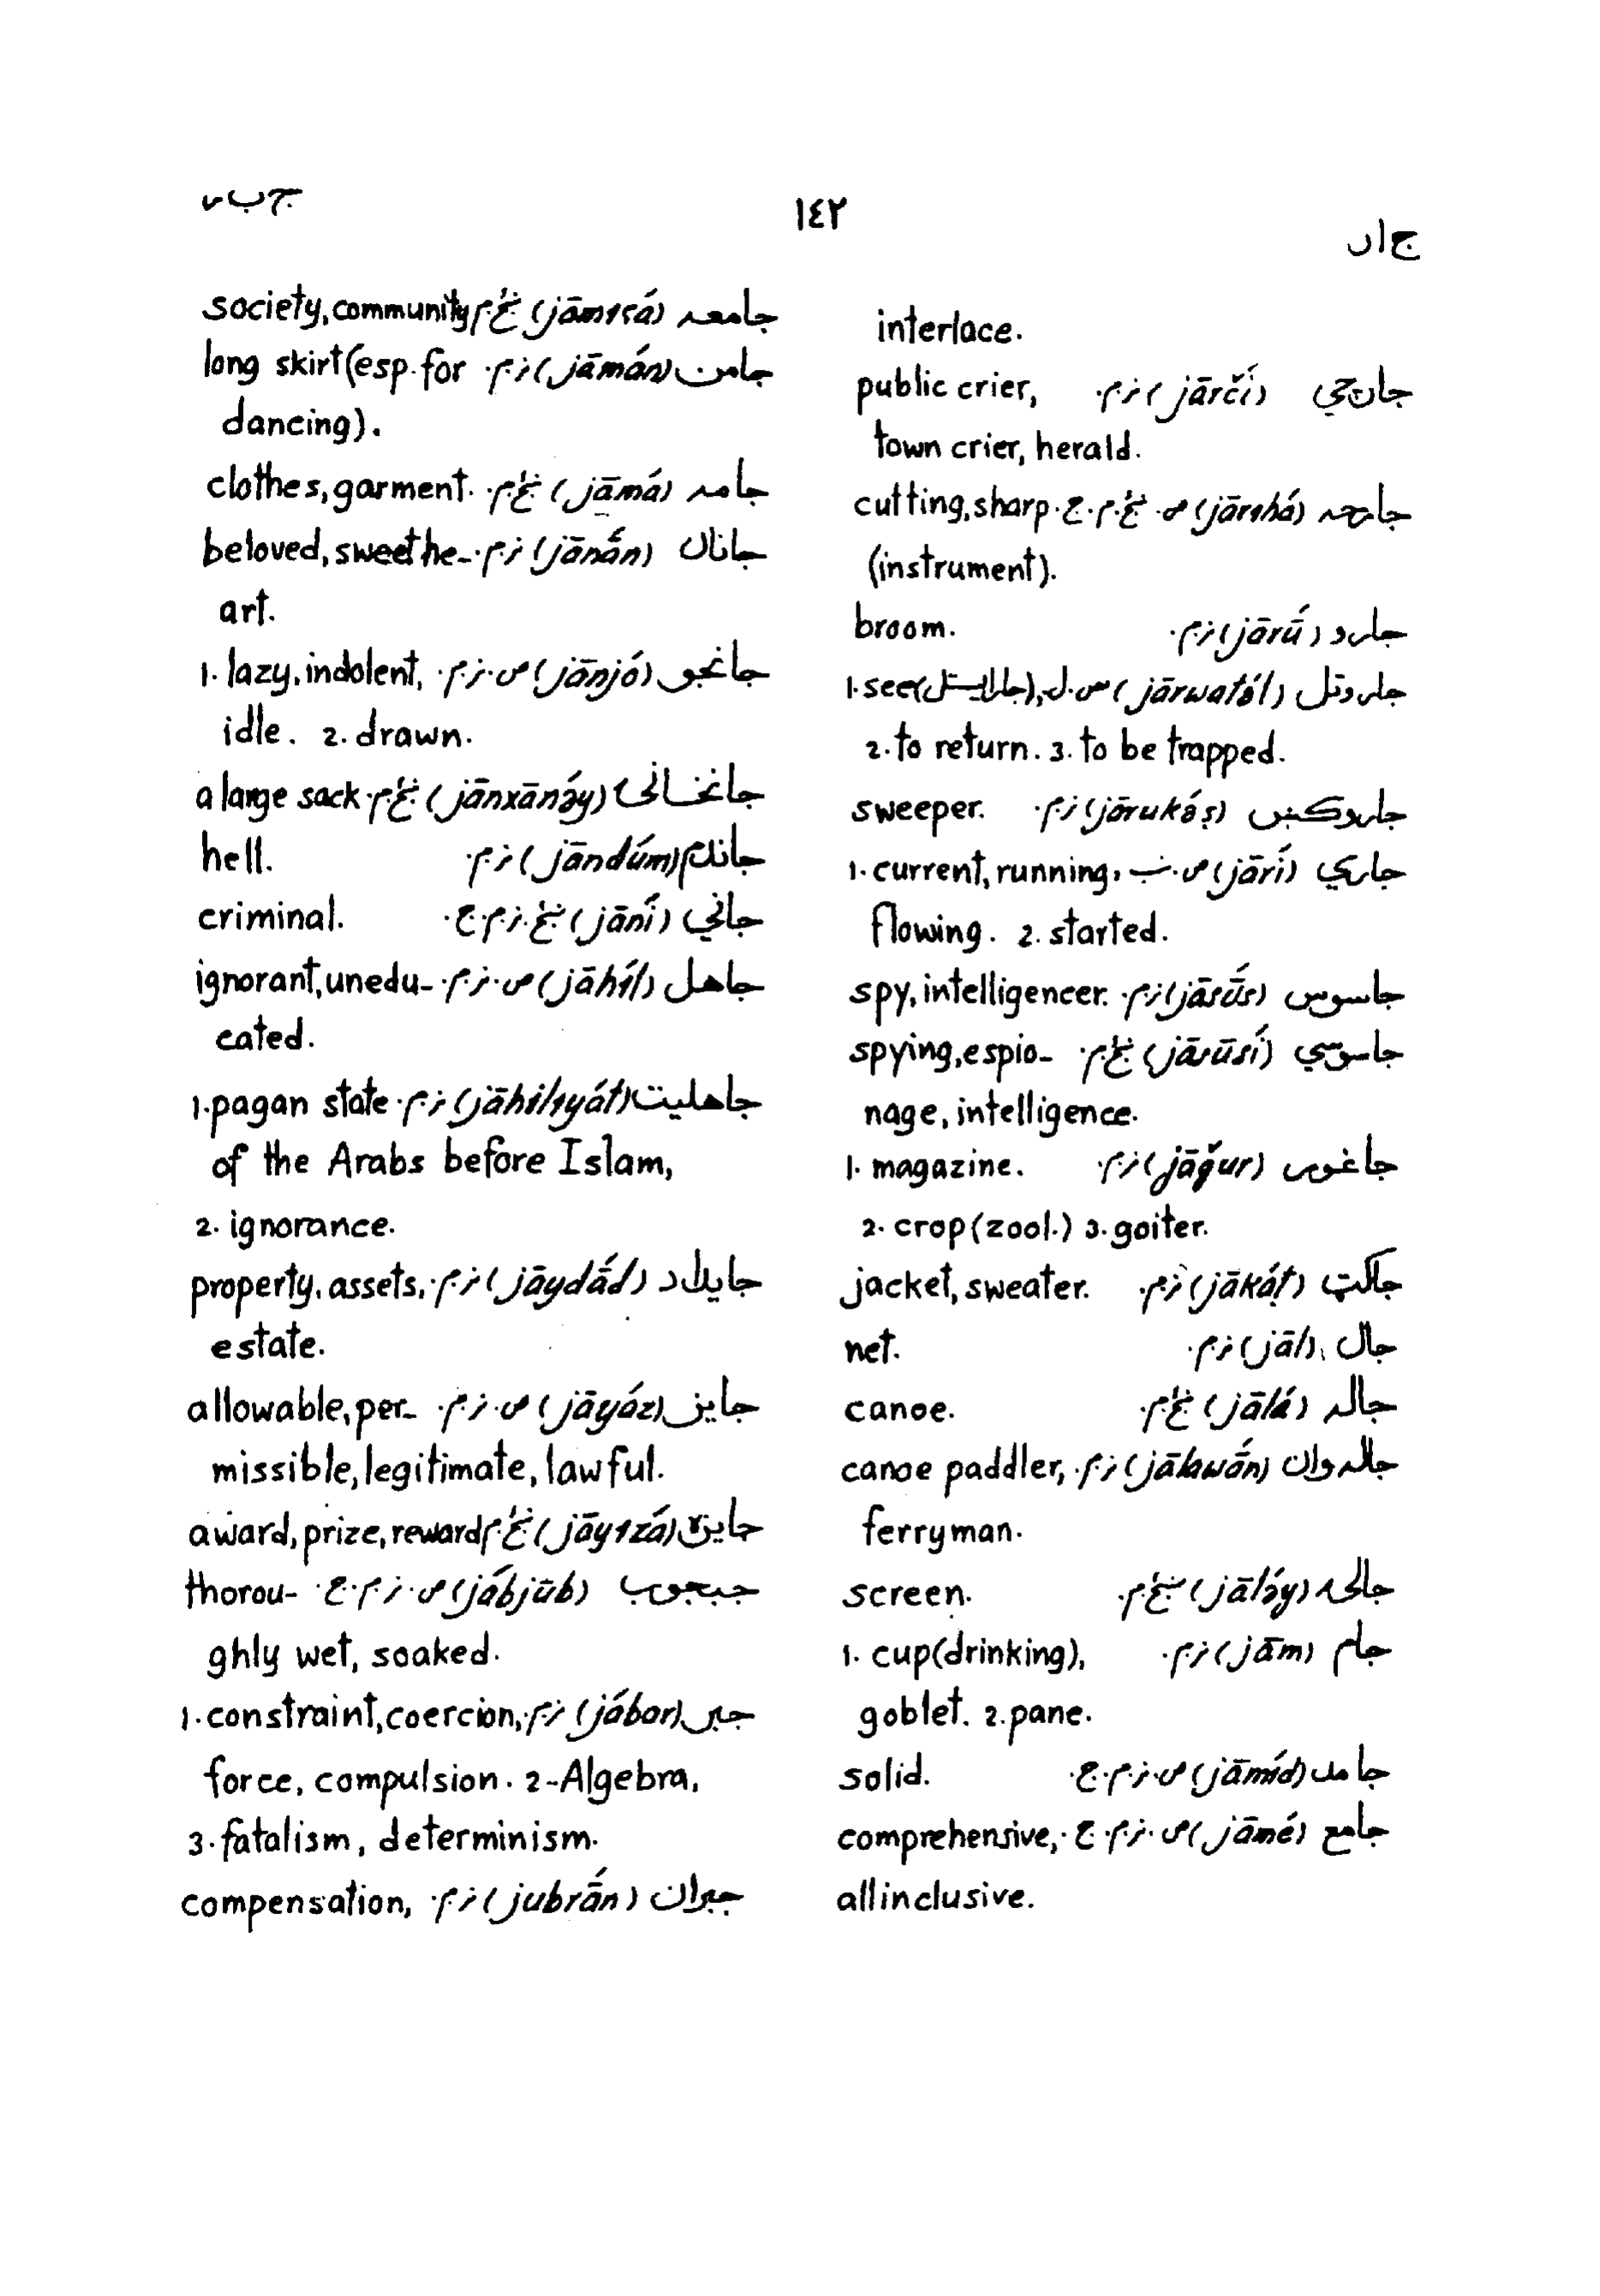 ج ا ر
١٤٢
ج ب ر
interlace.
جارچي (jārčí) ز.م. public crier,
town crier, herald.
جارحه (jārɪhá) ص. ښځ.م.ج. cutting, sharp
(instrument).
جارو (jārū́) ز.م. broom.
جاروتل (jārwatə́l) س.ل. 1. see(جارايستل),
2. to return. 3. to be trapped.
جاروكښ (jārukə́ṣ) ز.م. sweeper.
جاري (jārí) ص.ب. 1. current, running,
flowing. 2. started.
جاسوس (jāsū́s) ز.م. spy, intelligencer.
جاسوسي (jāsūsí) ښځ.م. spying, espio-
nage, intelligence.
جاغور (jāğur) ز.م. 1. magazine.
2. crop (zool.) 3. goiter.
جاكټ (jākáṭ) ز.م. jacket, sweater.
جال (jāl) ز.م. net.
جاله (jālá) ښځ.م. canoe.
جاله‌وان (jālawā́n) ز.م. canoe paddler,
ferryman.
جالۍ (jālə́y) ښځ.م. screen.
جام (jām) ز.م. 1. cup (drinking),
goblet. 2. pane.
جامد (jāmíd) ص.ز.م.ج. solid.
جامع (jāmé) ص.ز.م.ج. comprehensive,
all inclusive.
جامعه (jāmɪʕá) ښځ.م. society, community
جامن (jāmán) ز.م. long skirt (esp. for
dancing).
جامه (jāmá) ښځ.م. clothes, garment.
جانان (jānā́n) ز.م. beloved, sweethe-
art.
جانجو (jānjó) ص.ز.م. 1. lazy, indolent,
idle. 2. drawn.
جانخانۍ (jānxānə́y) ښځ.م. a large sack
جاندم (jāndúm) ز.م. hell.
جاني (jāní) ښځ.ز.م.ج. criminal.
جاهل (jāhíl) ص.ز.م. ignorant, unedu-
cated.
جاهليت (jāhilɪyát) ز.م. 1. pagan state
of the Arabs before Islam,
2. ignorance.
جايداد (jāydā́d) ز.م. property, assets,
estate.
جايز (jāyə́z) ص.ز.م. allowable, per-
missible, legitimate, lawful.
جايزه (jāyɪzá) ښځ.م. award, prize, reward
جبجوب (jábjūb) ص.ز.م.ج. thorou-
ghly wet, soaked.
جبر (jábər) ز.م. 1. constraint, coercion,
force, compulsion. 2-Algebra,
3. fatalism, determinism.
جبران (jubrā́n) ز.م. compensation,